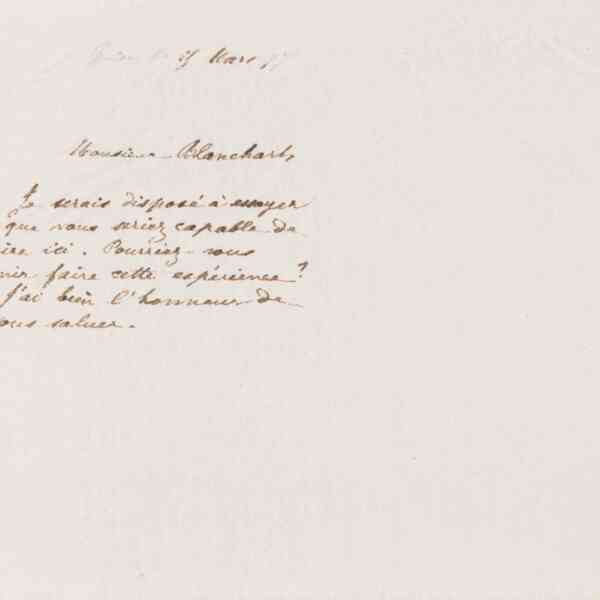 Mars
Monsieur Blanchart,
Je serais disposé à essayer
que vous seriez capable de
ire ici. Pourriez-vous
nir faire cette expérience?
J'ai bien l'honneur de
ous saluer.